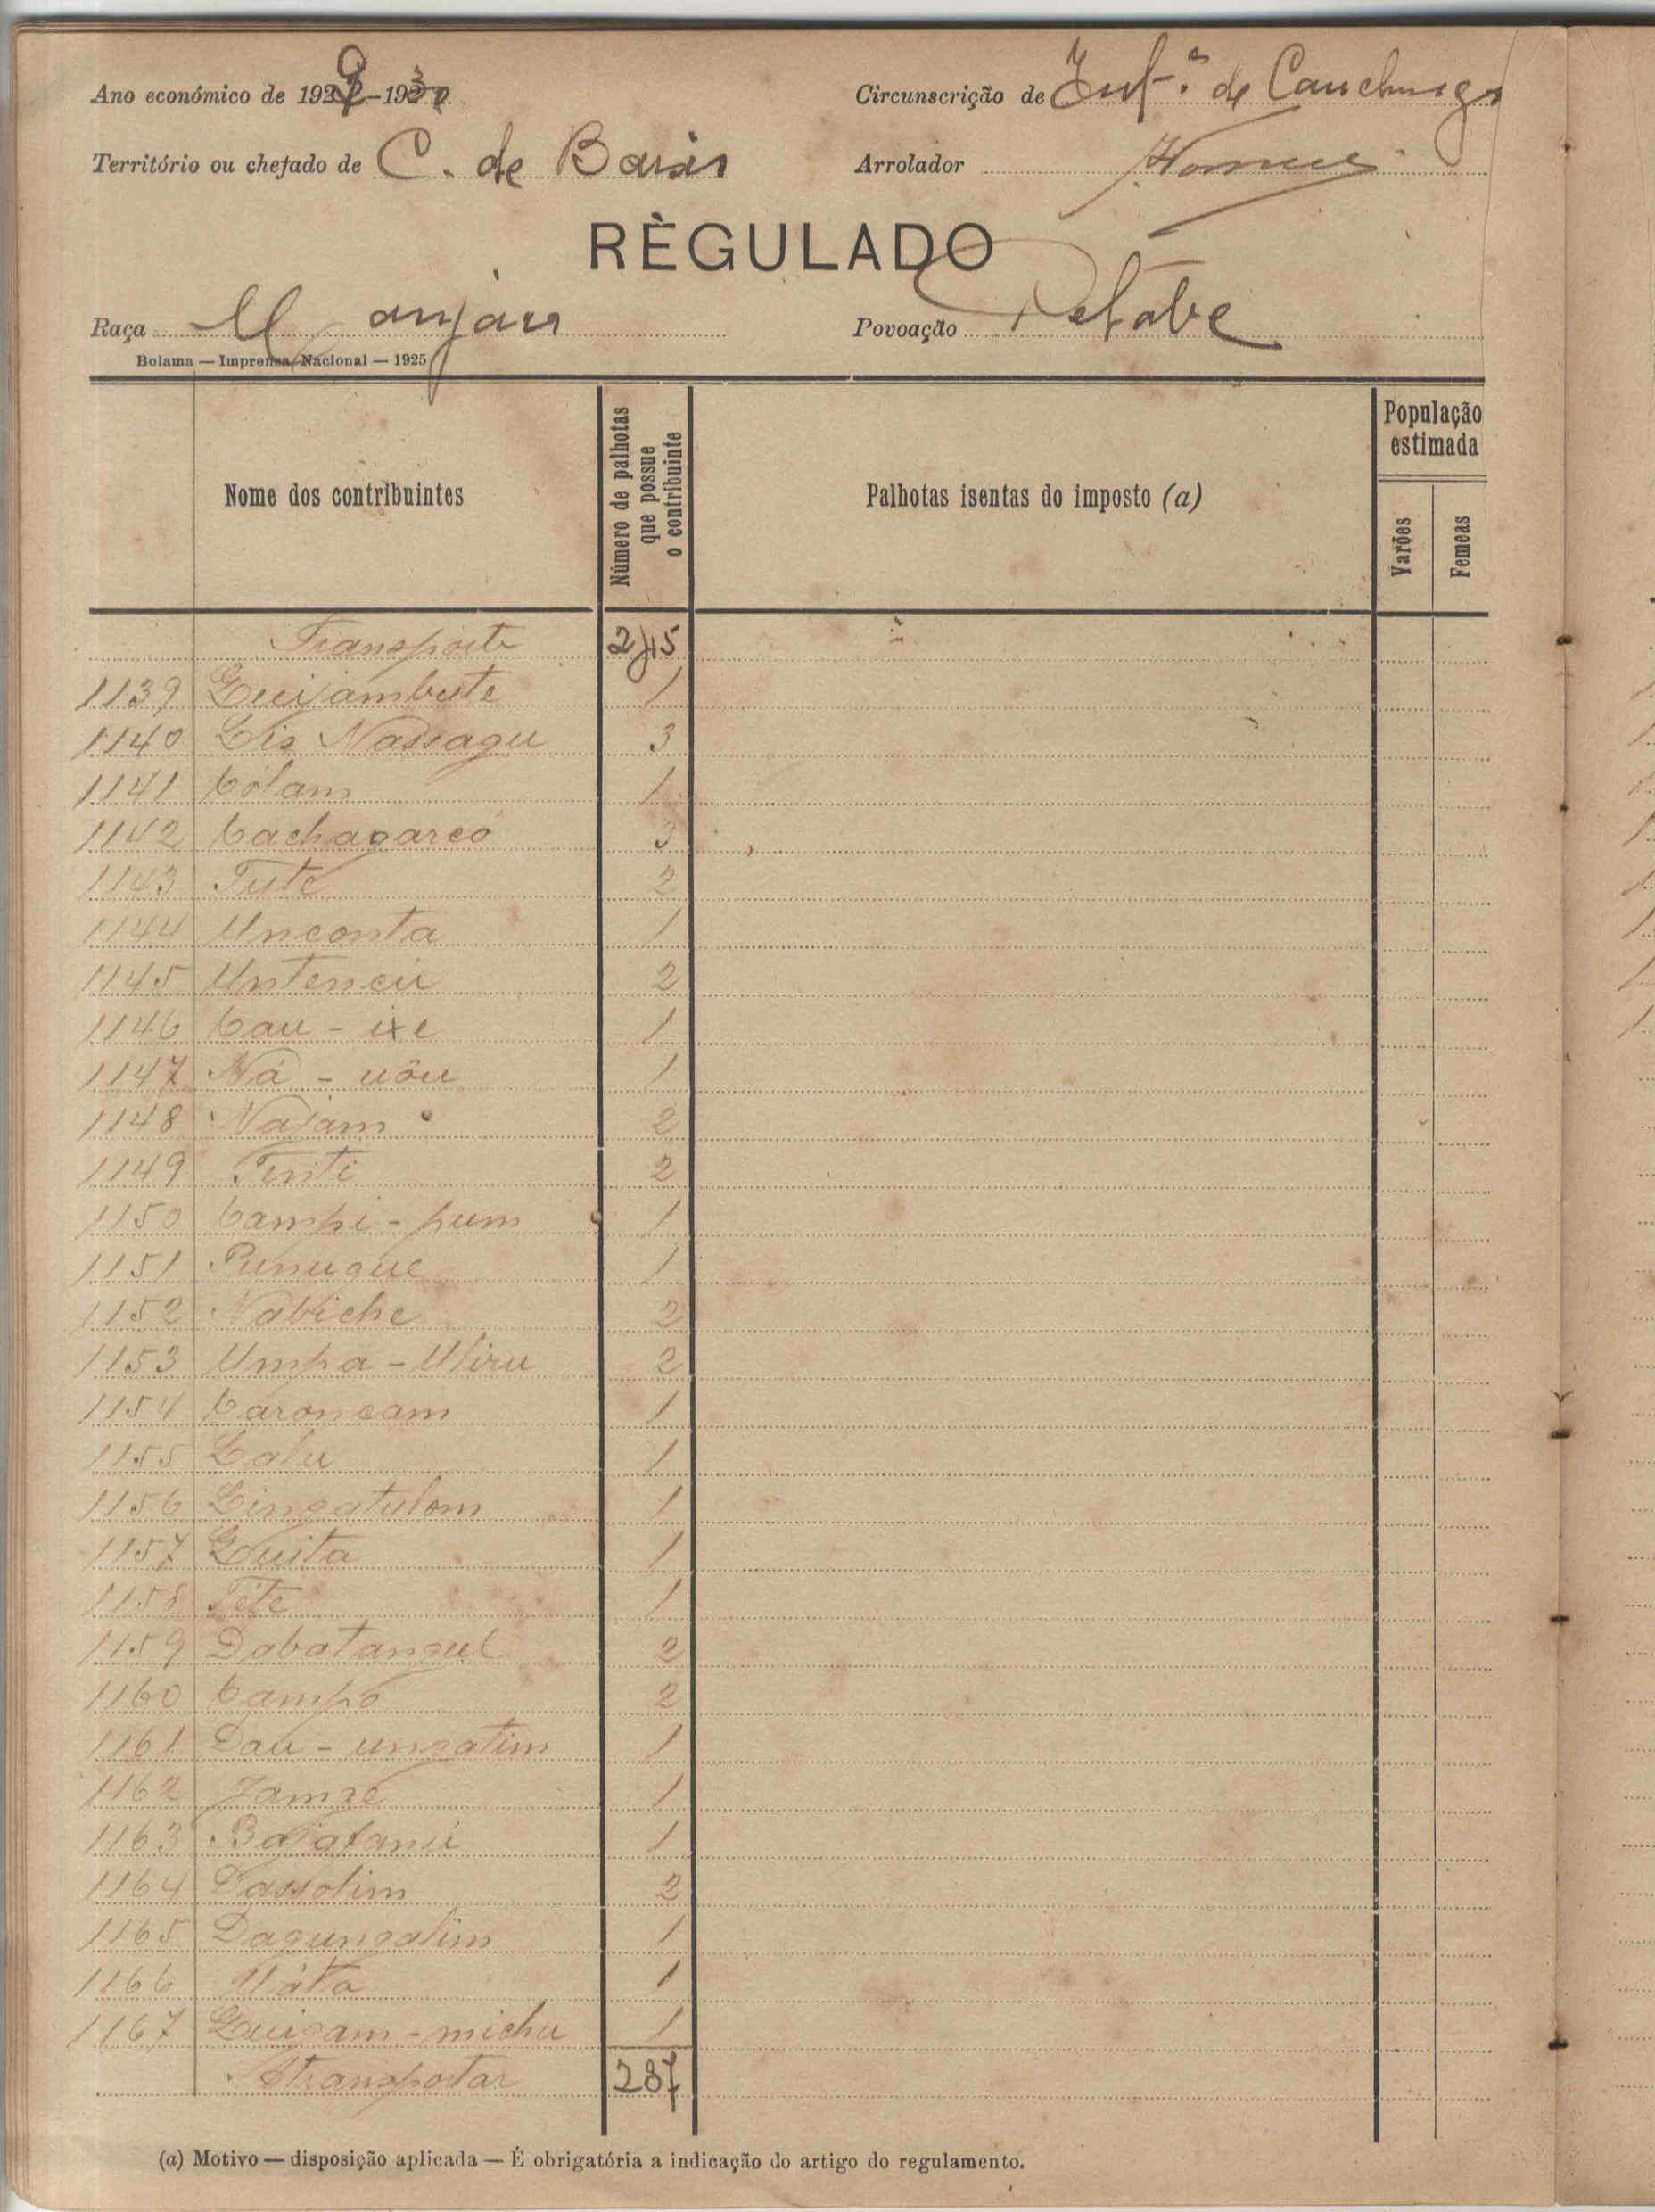 Ano económico de 1929-1930
Circunscrição de de Canchungo
Território ou chefado de C. de Baixo
Arrolador
RÈGULADO
Raça Manjaca
Povoação Petabe
Bolama — Imprensa Nacional — 1925
Nome dos contribuintes
Número de palhotas que possue o contribuinte
Palhotas isentas do imposto (a)
População estimada
Varões
Femeas
Transporte 245
1139 Quijambute 1
1140 Lis Nassagu 3
1141 Cólam 1
1142 Cachagarcó 3
1143 Tute 2
1144 Unconta 1
1145 Untencú 2
1146 Cau - ixe 1
1147 Ná - uôu 1
1148 Najam 2
1149 Tenti 2
1150 Campi - pum 1
1151 Punugue 1
1152 Nabiche 2
1153 Umpa - Uliru 2
1154 Caroncam 1
1155 Lalu 1
1156 Lingatulom 1
1157 Quita 1
1158 Téte 1
1159 Dabatangul 2
1160 Campó 2
1161 Dau - ungatim 1
1162 Jamge 1
1163 Bajafanú 1
1164 Dassolim 2
1165 Dagungalim 1
1166 Uáta 1
1167 Quigam - michu 1
A transportar 287
(a) Motivo — disposição aplicada — É obrigatória a indicação do artigo do regulamento.